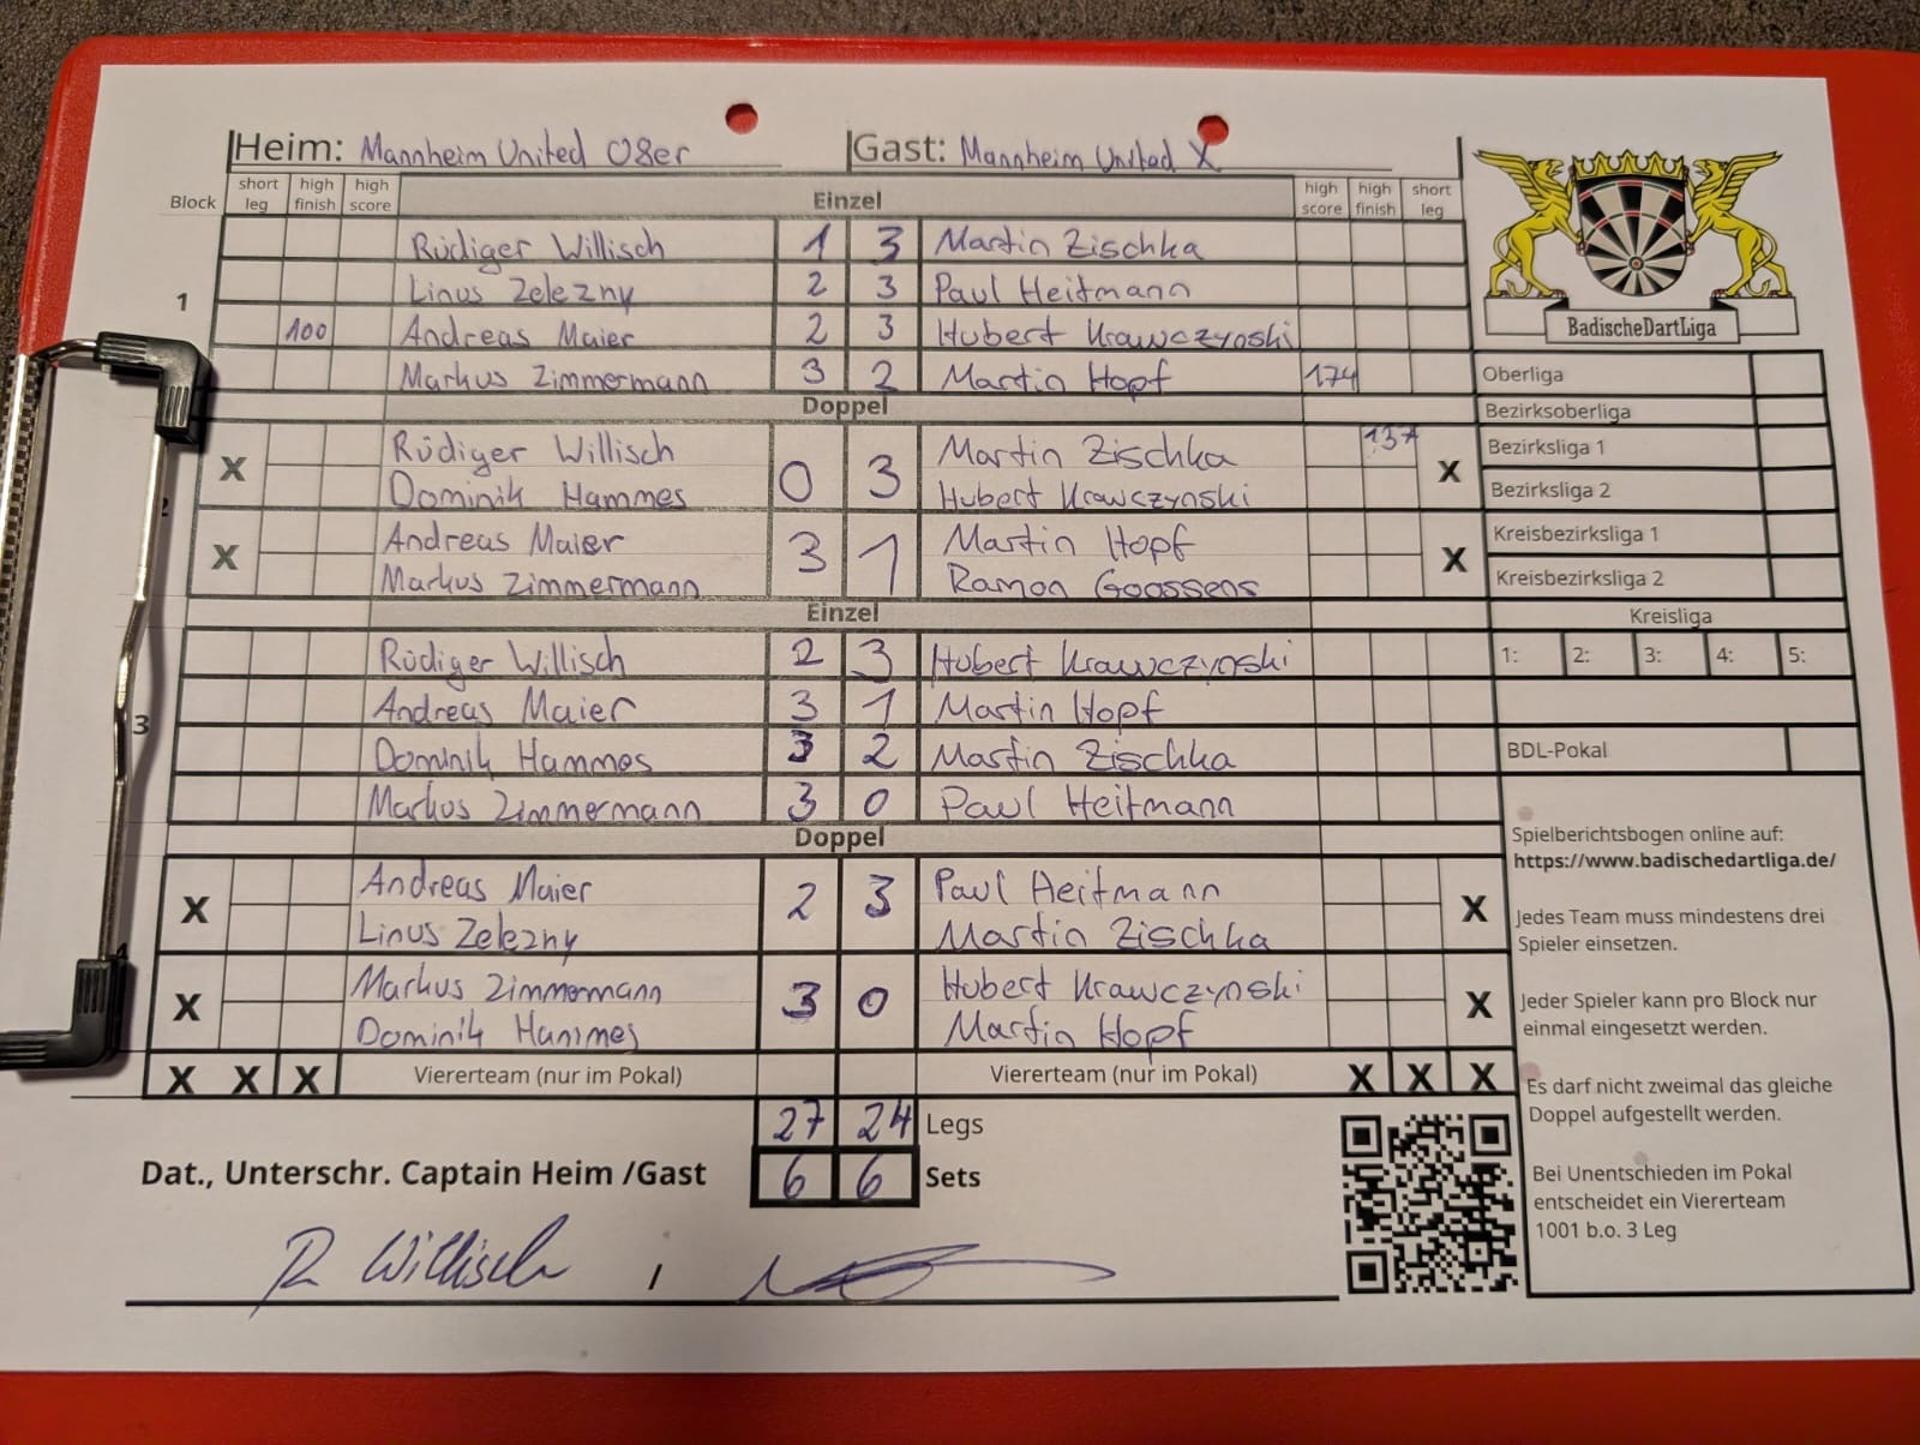 Heim: Mannheim United 08er Gast: Mannheim United X
Block short leg high finish high score Einzel high score high finish short leg
Rüdiger Willisch 1 3 Martin Zischka
1 Linus Zelezny 2 3 Paul Heitmann
100 Andreas Maier 2 3 Hubert Krawczynski
Markus Zimmermann 3 2 Martin Hopf 174
Doppel
X Rüdiger Willisch 0 3 Martin Zischka 137 X
Dominik Hammes Hubert Krawczynski
2
X Andreas Maier 3 1 Martin Hopf X
Markus Zimmermann Ramon Goossens
Einzel
Rüdiger Willisch 2 3 Hubert Krawczynski
3 Andreas Maier 3 1 Martin Hopf
Dominik Hammes 3 2 Martin Zischka
Markus Zimmermann 3 0 Paul Heitmann
Doppel
X Andreas Maier 2 3 Paul Heitmann X
Linus Zelezny Martin Zischka
4
X Markus Zimmermann 3 0 Hubert Krawczynski X
Dominik Hammes Martin Hopf
X X X Viererteam (nur im Pokal) Viererteam (nur im Pokal) X X X
27 24 Legs
Dat., Unterschr. Captain Heim /Gast 6 6 Sets
R Willisch /
BadischeDartLiga
Oberliga
Bezirksoberliga
Bezirksliga 1
Bezirksliga 2
Kreisbezirksliga 1
Kreisbezirksliga 2
Kreisliga
1: 2: 3: 4: 5:
BDL-Pokal
Spielberichtsbogen online auf:
https://www.badischedartliga.de/
Jedes Team muss mindestens drei
Spieler einsetzen.
Jeder Spieler kann pro Block nur
einmal eingesetzt werden.
Es darf nicht zweimal das gleiche
Doppel aufgestellt werden.
Bei Unentschieden im Pokal
entscheidet ein Viererteam
1001 b.o. 3 Leg